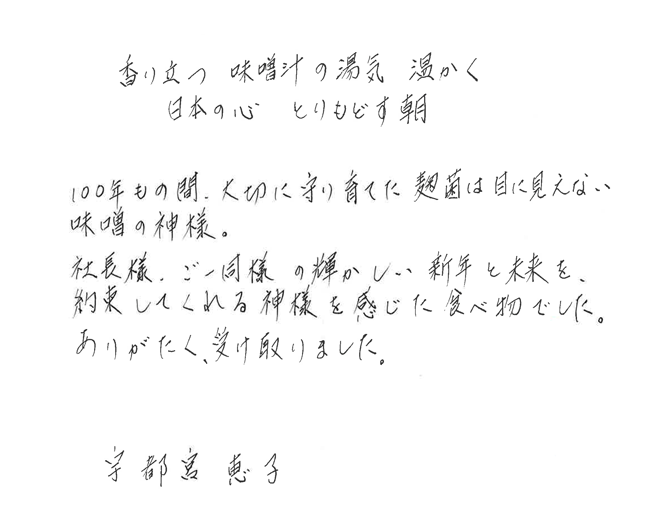 香り立つ 味噌汁の湯気 温かく
日本の心 とりもどす朝
100年もの間、大切に守り育てた麹菌は目に見えない
味噌の神様。
社長様、ご一同様の輝かしい新年と未来を、
約束してくれる神様を感じた食べ物でした。
ありがたく、受け取りました。
宇都宮 恵子